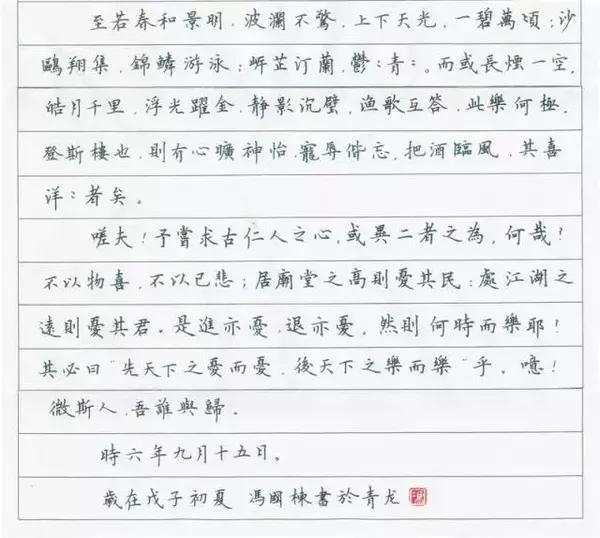 至若春和景明，波瀾不驚，上下天光，一碧萬頃；沙
鷗翔集，錦鱗游泳；岸芷汀蘭，鬱：青：。而或長煙一空，
皓月千里，浮光躍金，静影沉璧，漁歌互答，此樂何極，
登斯樓也，則有心曠神怡，寵辱偕忘，把酒臨風，其喜
洋：者矣。
嗟夫！予嘗求古仁人之心，或異二者之為，何哉！
不以物喜，不以已悲；居廟堂之高則憂其民；處江湖之
遠則憂其君。是進亦憂，退亦憂，然則何時而樂耶！
其必曰“先天下之憂而憂，後天下之樂而樂”乎。噫！
微斯人，吾誰與歸。
時六年九月十五日。
歲在戊子初夏 馮國棟書於青龙